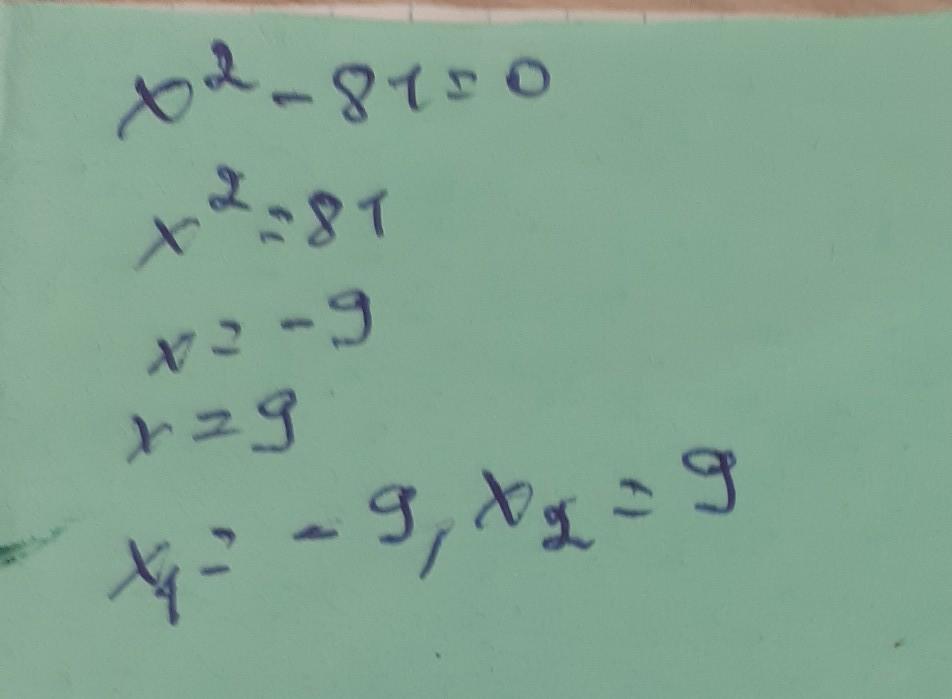 x² - 81 = 0
x² = 81
x = - 9
x = 9
x₁ = - 9, x₂ = 9